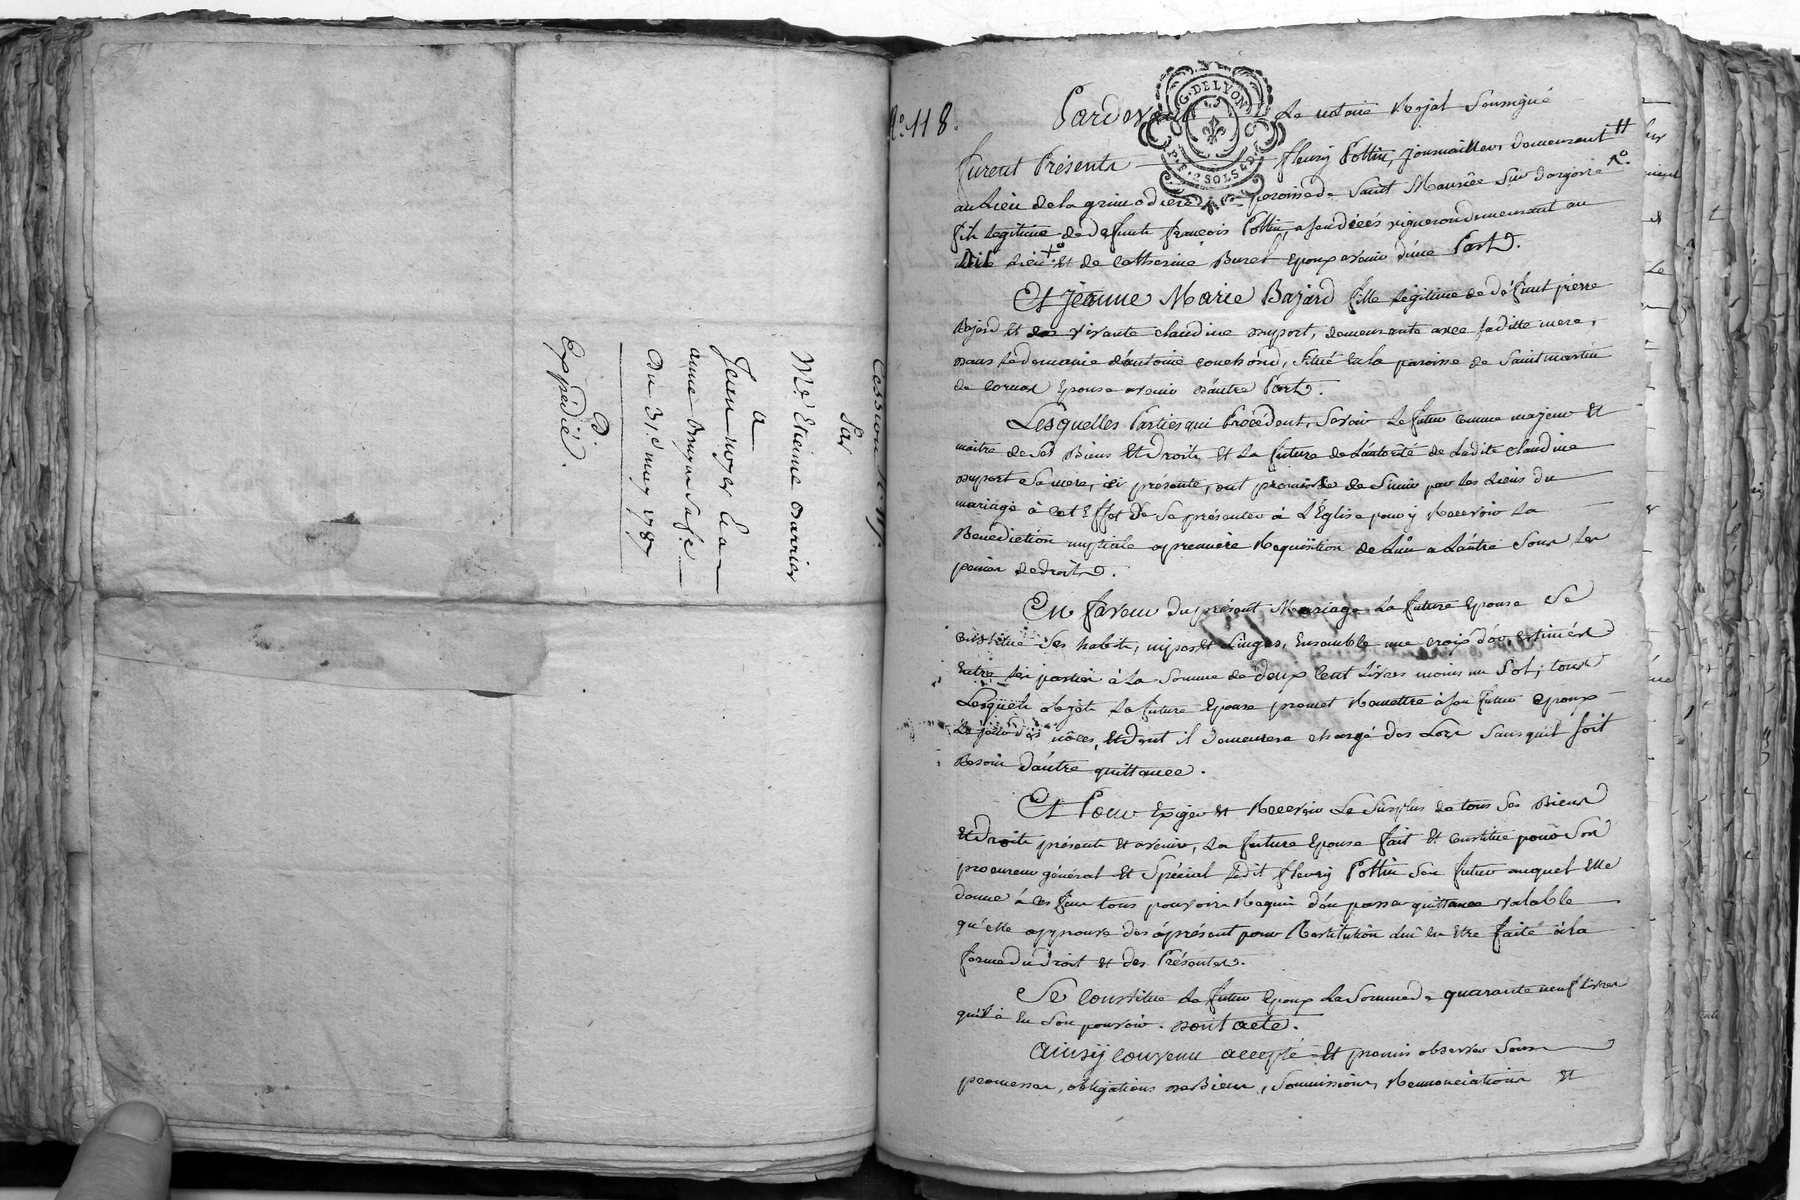 Cession N° 117.
Par
Mr Etienne Barrier
a
Jean noyer & a
anne Bruyas Sa fe
Du 31e may 1787
Expédié.
N° 118.
G. DE LYON
P. P. 2 SOLS 8 D.
Pardevant Le notaire Royal Soussigné
furent Présents fleury Pottin, Journaillieur demeurant
au Lieu de la grimodiere paroisse de Saint Maurice Sur dargoire
fils Legitime de defunt françois Pottin, a Son décés vigneron demeurant au
dit Lieu et de Catherine Buret Epoux avenir d'une Part.
Et Jeanne Marie Bajard fille Legitime de défunt pierre
Bajard et vivante claudine duport, demeurante avec saditte mere,
dans le domaine d'antoine couchoud, Situé en la paroisse de Saint martin
de cornas Epouse avenir d'autre Part.
Lesquelles Parties qui Procédent, Savoir Le futur comme majeur et
maitre de Ses Biens Et droits et La future de L'autorité de Ladite claudine
duport Sa mere, ici présente, ont promis de S'unir par les Liens du
mariage à cet Effet de Se présenter à L'Eglise pour y Recevoir La
Benediction nuptiale a premiere Requisition de L'un a L'autre Sous Les
peines de droit.
En faveur du présent Mariage La future Epouse Se
constitue Ses habits, nipes et Linges, Ensemble une croix d'or, estimés
Entre les parties à La Somme de deux Cent Livres moins un Sol; tous
Lesquels objets La future Epouse promet Remettre à Son futur Epoux
Le jour des nôces, et dont il demeurera chargé des Lors Sans quil Soit
Besoin d'autre quittance.
Et Pour Exiger et Recevoir Le Surplus de tous Ses Biens
Et droits présents et avenir, La future Epouse fait et constitue pour Son
procureur général et Spécial Ledit fleury Pottin Son futur auquel elle
donne à ces fins tous pouvoirs Requis d'en passer quittance valable
qu'elle approuve des àprésent pour Restitution lui en être faite à la
forme du droit et des Présentes.
Se Constitue Le futur Epoux La Somme de quarante neuf Livres
quil à en Son pouvoir. dont acte.
Ainsy convenu accepté et promis observer Sous
promesses, obligations de Biens, Soumissions, Renonciations et